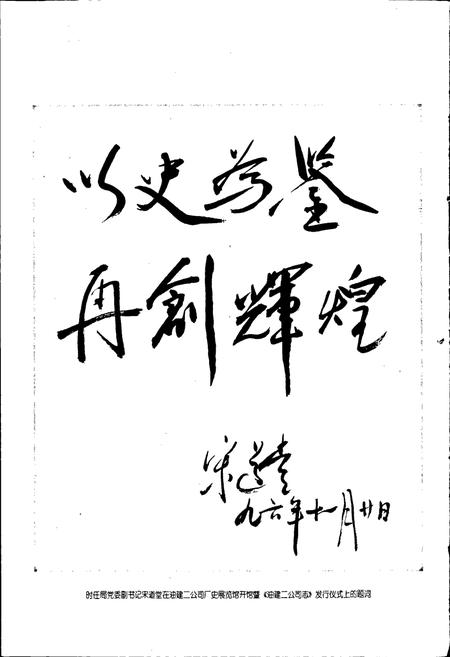 以史为鉴
再創輝煌
宋道堂
九六年十一月廿日
时任局党委副书记宋道堂在油建二公司厂史展览馆开馆暨《油建二公司志》发行仪式上的题词